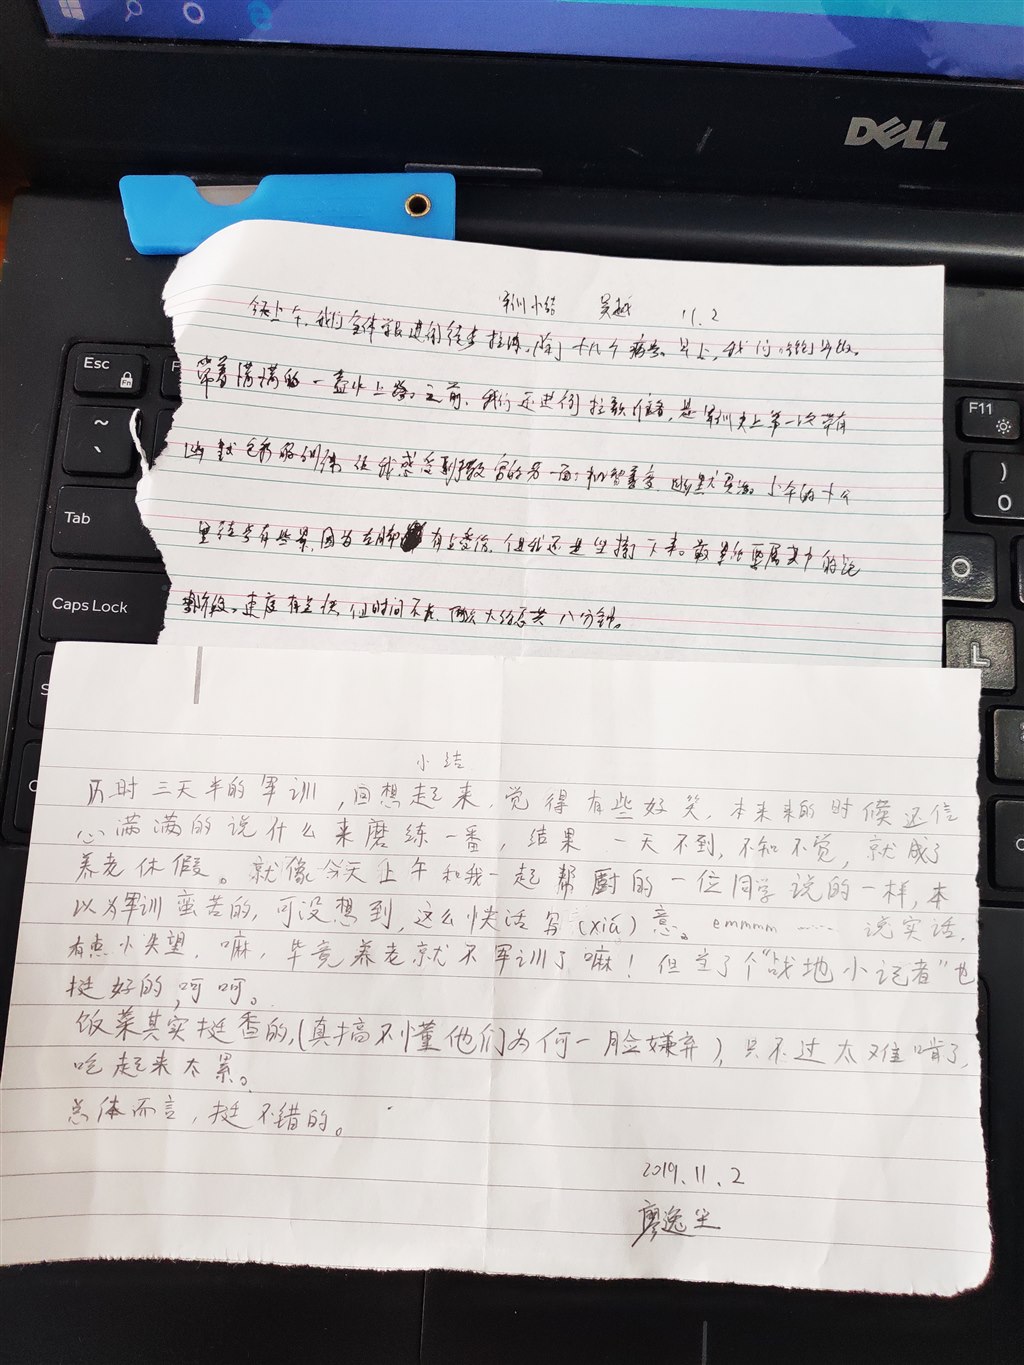 DELL
Esc
Fn
F11
~
Tab
)
0
O
Caps Lock
L
军训小结 吴越 11.2
今天上午，我们全体学员进行徒步拉练，除了十几个病号。早上，我们
带着满满的一壶水上路。之前，我们还进行拉歌 是军训史上第一次带有
幽默色彩的训练 让我感受到教官的另一面：机智善变，幽默 下午的十公
里徒步有些累，因为左脚有点受伤，但我还是坚持下来。最累的要属其中的
阶段。速度有点快，但时间不长，两次大约总共八分钟。
小结
历时三天半的军训，回想起来，觉得有些好笑，本来来的时候还信
心满满的说什么来磨练一番，结果 一天不到，不知不觉，就成了
养老休假。就像今天上午和我一起帮厨的一位同学说的一样，本
以为军训蛮苦的，可没想到，这么快活写(xiá)意。emmmm …… 说实话，
有点小失望，嘛，毕竟养老就不军训了嘛！但当了个“战地小记者”也
挺好的，呵呵。
饭菜其实挺香的，(真搞不懂他们为何一脸嫌弃)，只不过太难啃了，
吃起来太累。
总体而言，挺不错的。
2019.11.2
廖逸尘